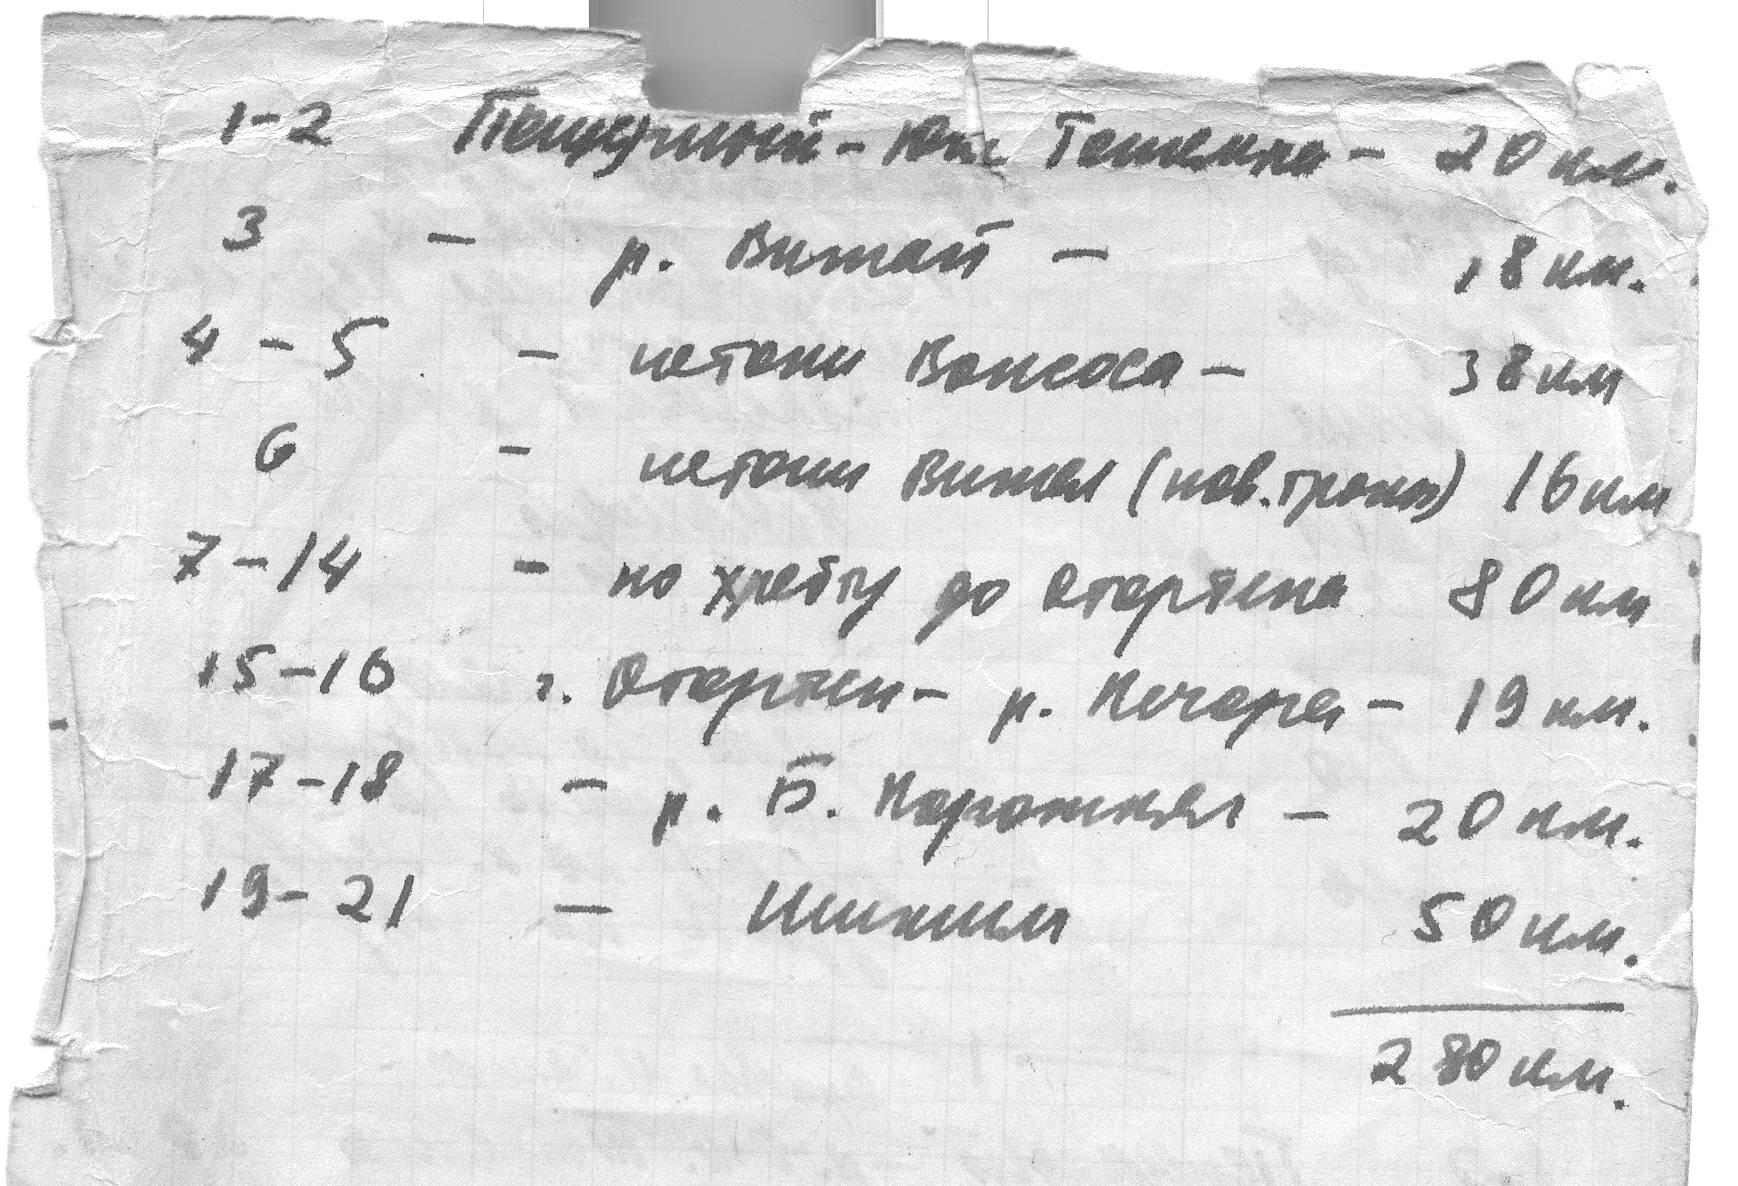 1-2 Пещерный - Юж. Тошемка - 20 км.
3 - р. Вижай - 18 км.
4 - 5 - истоки Вапсоса - 38 км
6 - истоки Вижая (нов. тропа) 16 км
7 - 14 - по хребту до Отортена 80 км
15-16 г. Отортен - р. Печора - 19 км.
17-18 - р. Б. Порожная - 20 км.
19 - 21 - 50 км.
280 км.